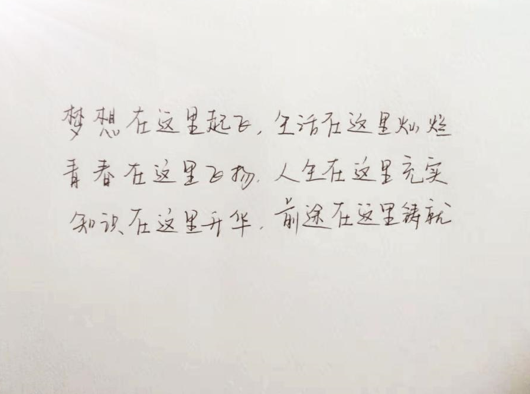 梦想在这里起飞,生活在这里灿烂
青春在这里飞扬.人生在这里充实
知识在这里升华,前途在这里铸就